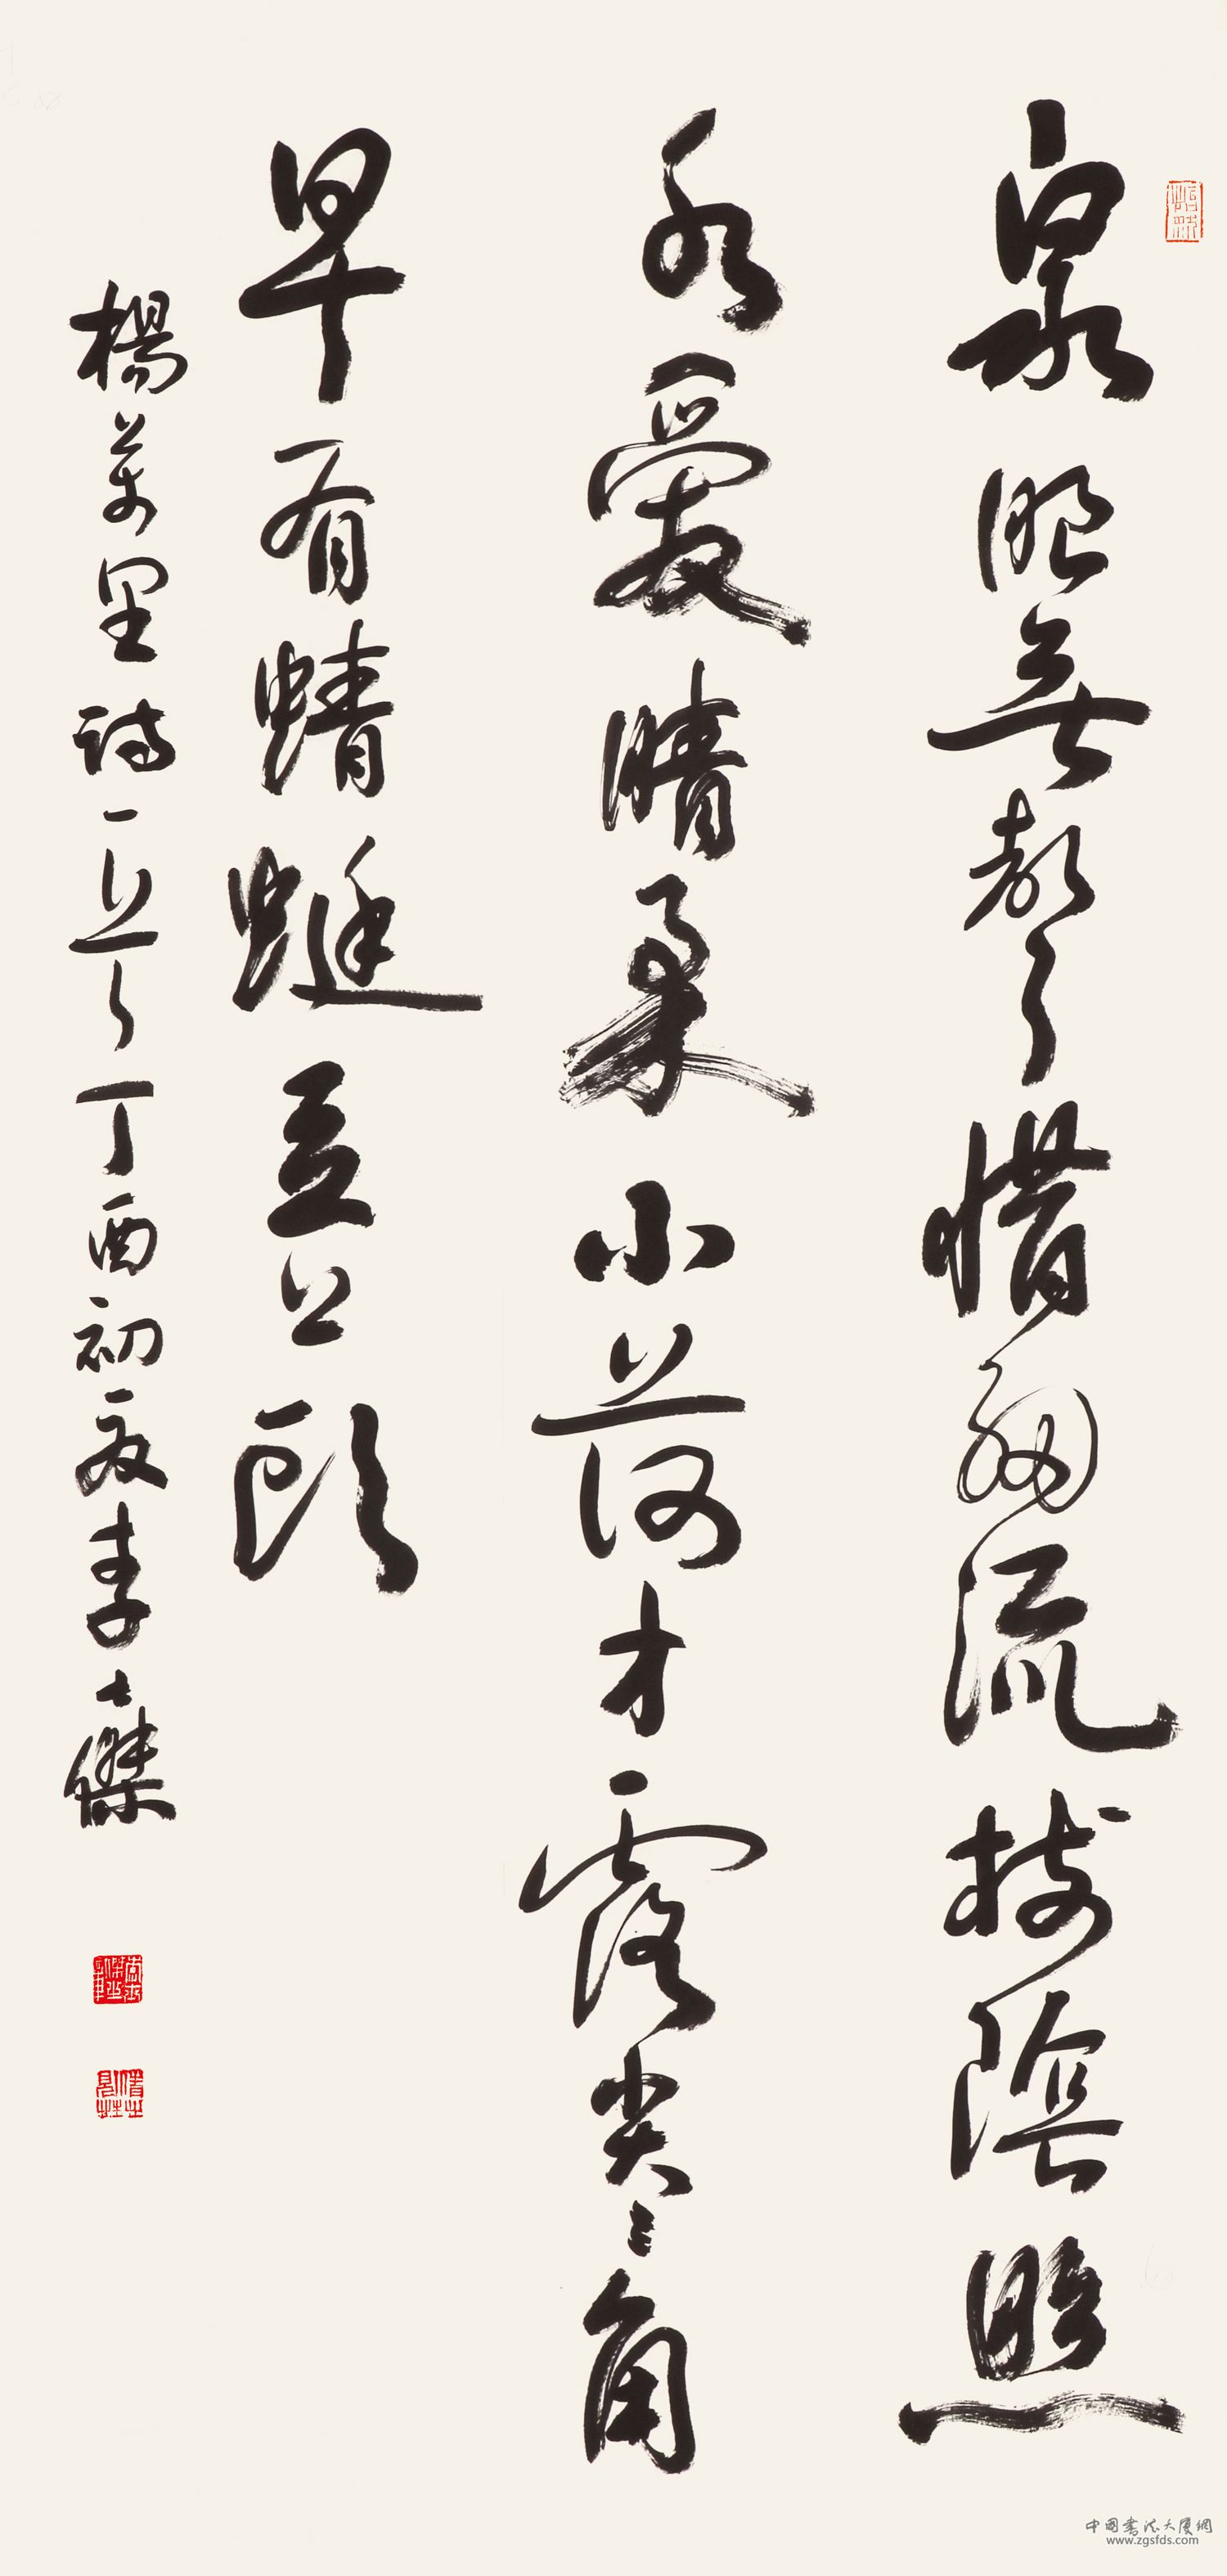 泉眼無聲惜細流樹陰照
水愛晴柔小荷才露尖々角
早有蜻蜓立上頭
楊萬里詩一首丁酉初夏李士傑
中国书法大厦網
www.zgsfds.com